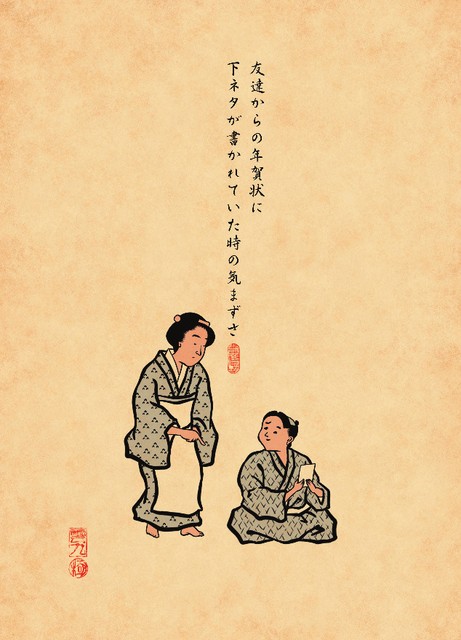 友達からの年賀状に
下ネタが書かれていた時の気まずさ